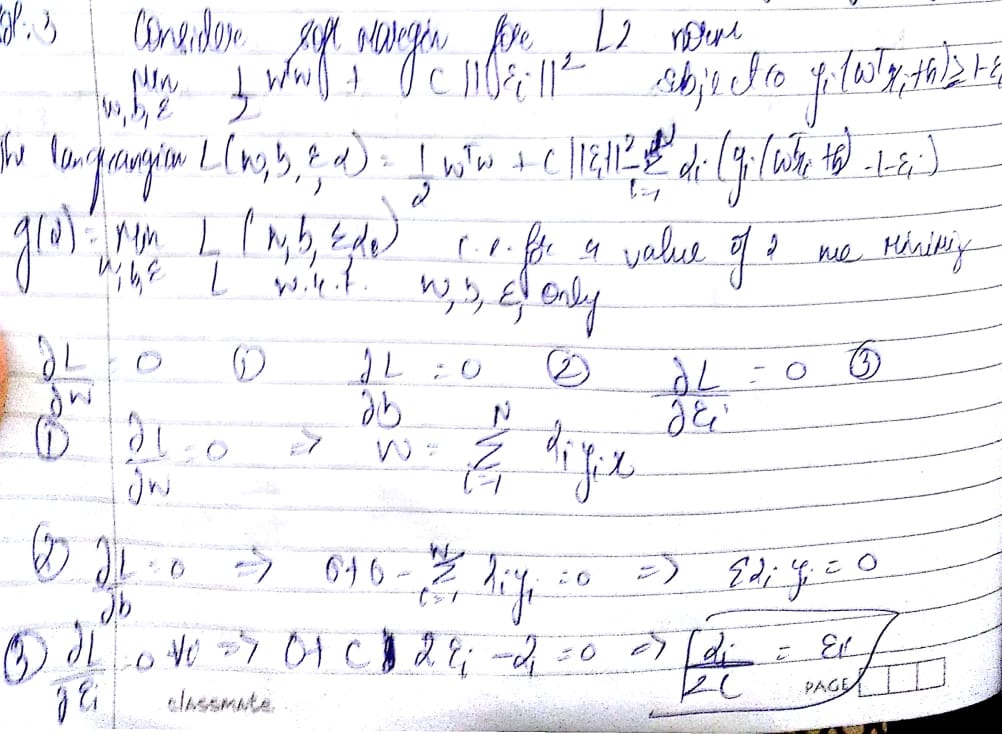 Consider soft margin for L2 norm
Min w,b,ε 1/2 wᵀw + C ||εi||² subject to yi(wᵀxi+b)≥1-εi
The langrangian L(w,b,ε,α) = 1/2 wᵀw + C||ε||² - Σ i=1 N αi (yi(wᵀxi+b) -1-εi)
g(α) = Min w,b,ε L(w,b,ε,α) i.e. for a value of α we
L w.r.t. w,b,ε, only
∂L/∂w = 0 ① ∂L/∂b = 0 ② ∂L/∂εi = 0 ③
① ∂L/∂w = 0 => w = Σ i=1 N αi yi x
② ∂L/∂b = 0 => 0+0- Σ i=1 N αi yi = 0 => Σαi yi = 0
③ ∂L/∂εi = 0 => 0+ C 2εi - αi = 0 => αi/2C = εi
classmate PAGE